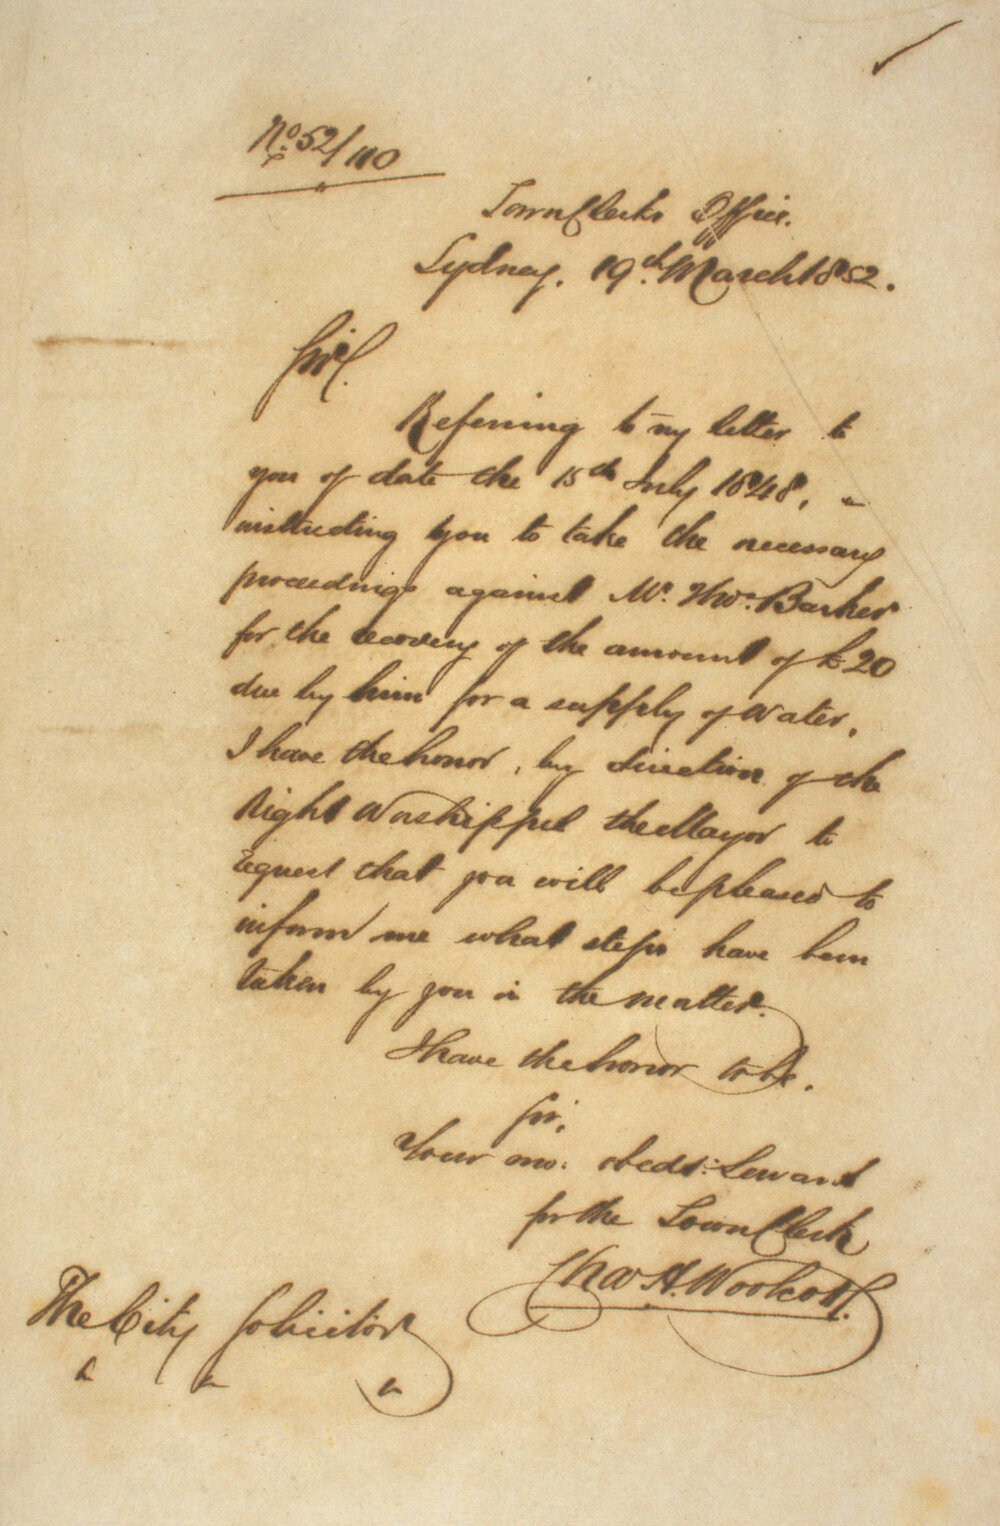 No. 52/110
Town Clerks Office.
Sydney. 19th March 1852.
Sir,
Referring to my letter to
you of date the 15th July 1848,
instructing you to take the necessary
proceedings against Mr. Thos. Barker
for the recovery of the amount of £20
due by him for a supply of Water,
I have the honor, by direction of the
Right Worshipful the Mayor to
request that you will be pleased to
inform me what steps have been
taken by you in the matter.
I have the honor to be.
Sir,
Your mo: obedt: Servant
for the Town Clerk
Chas H. Woolcott.
The City Solicitor